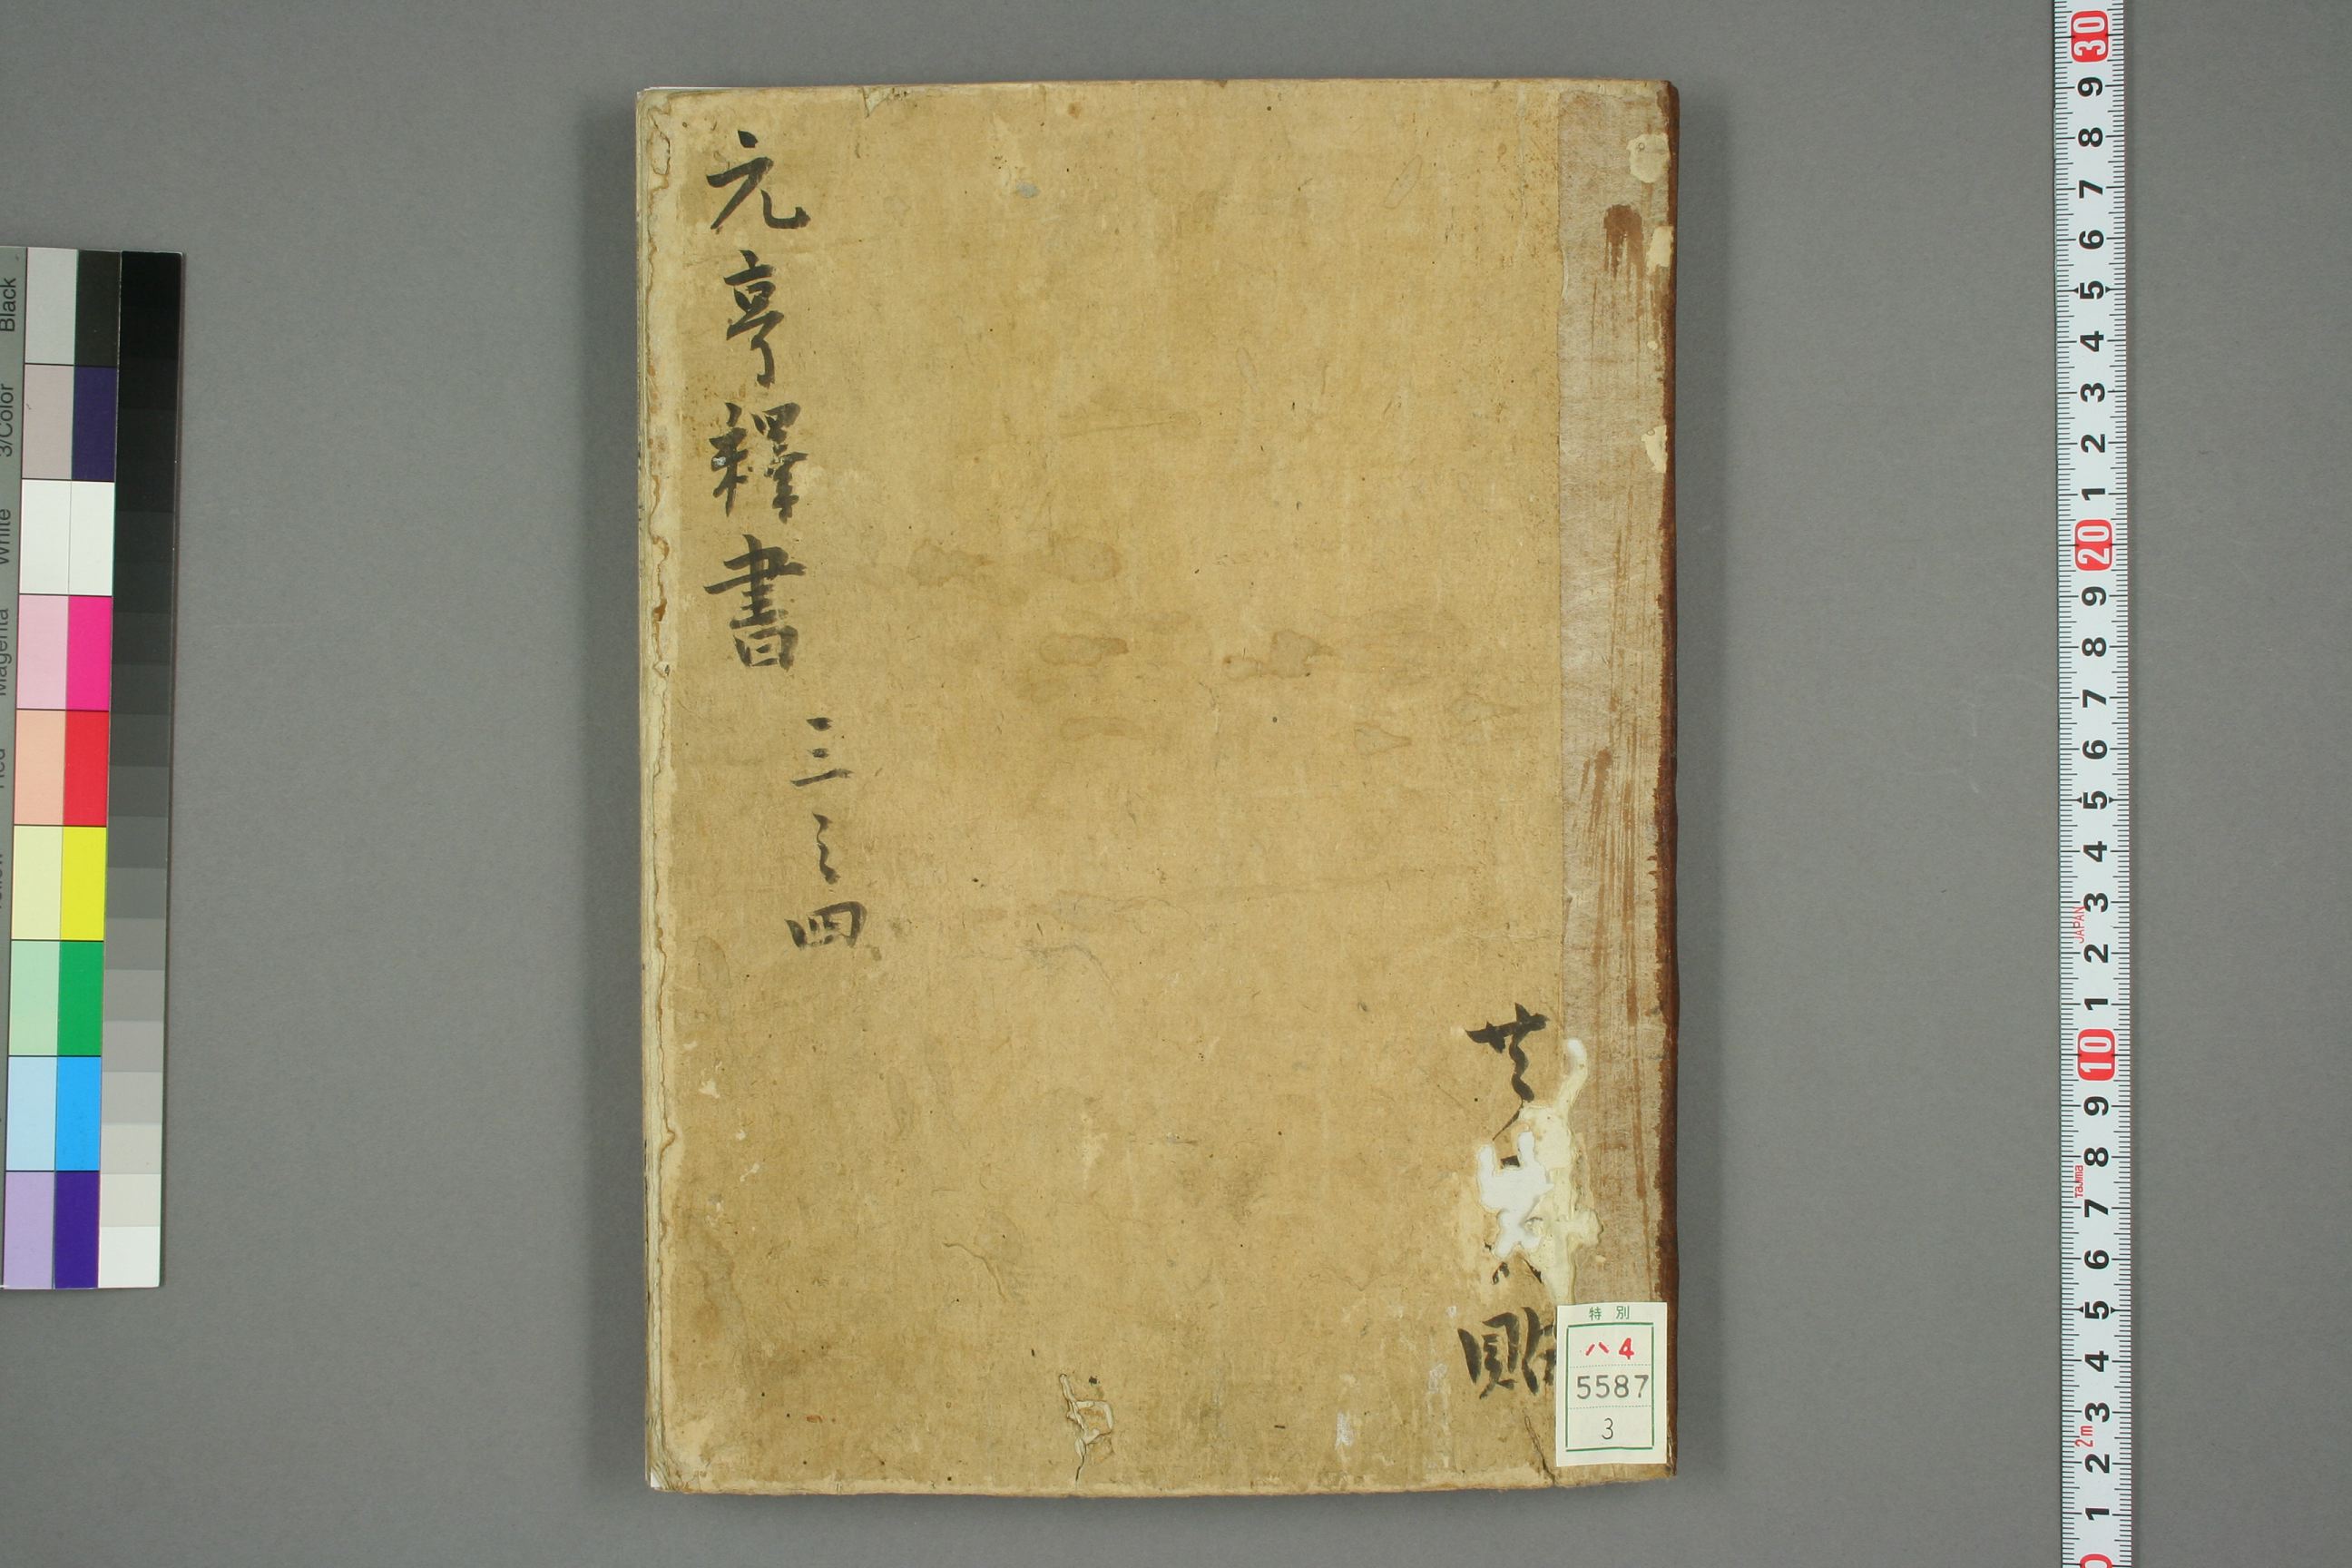 元亨釋書
三之四
特別
ハ4
5587
3
Black
3/Color
White
Magenta
30
9
8
7
6
5
4
3
2
1
20
9
8
7
6
5
4
3
JAPAN
2
1
10
9
8
Tajima
7
6
5
4
3
2m
2
1
0